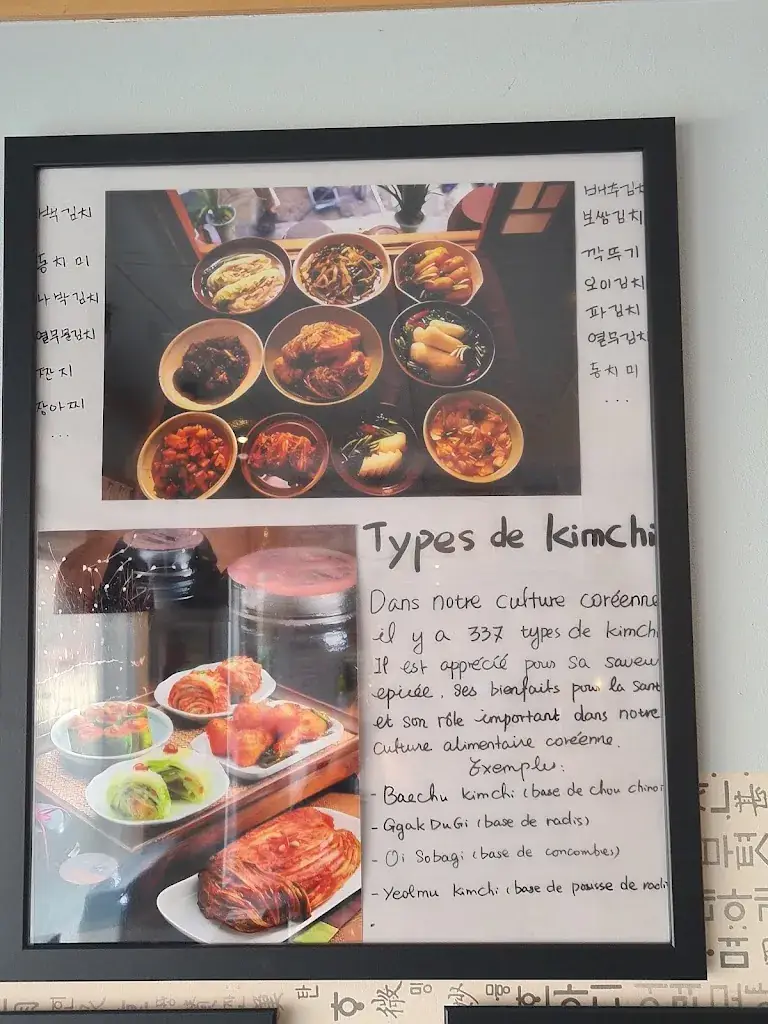 백김치
동치미
나박김치
열무물김치
짠지
장아찌
...
배추김치
보쌈김치
깍뚜기
오이김치
파김치
열무김치
동치미
...
Types de kimchi
Dans notre culture coréenne
il y a 337 types de kimchi
Il est apprécié pour sa saveu
epicée, ses bienfaits pour la sant
et son rôle important dans notre
culture alimentaire coréenne.
Exemple:
- Baechu kimchi (base de chou chinoi
- GgakDuGi (base de radis)
- Oi Sobagi (base de concombres)
- Yeolmu kimchi (base de pousse de radi